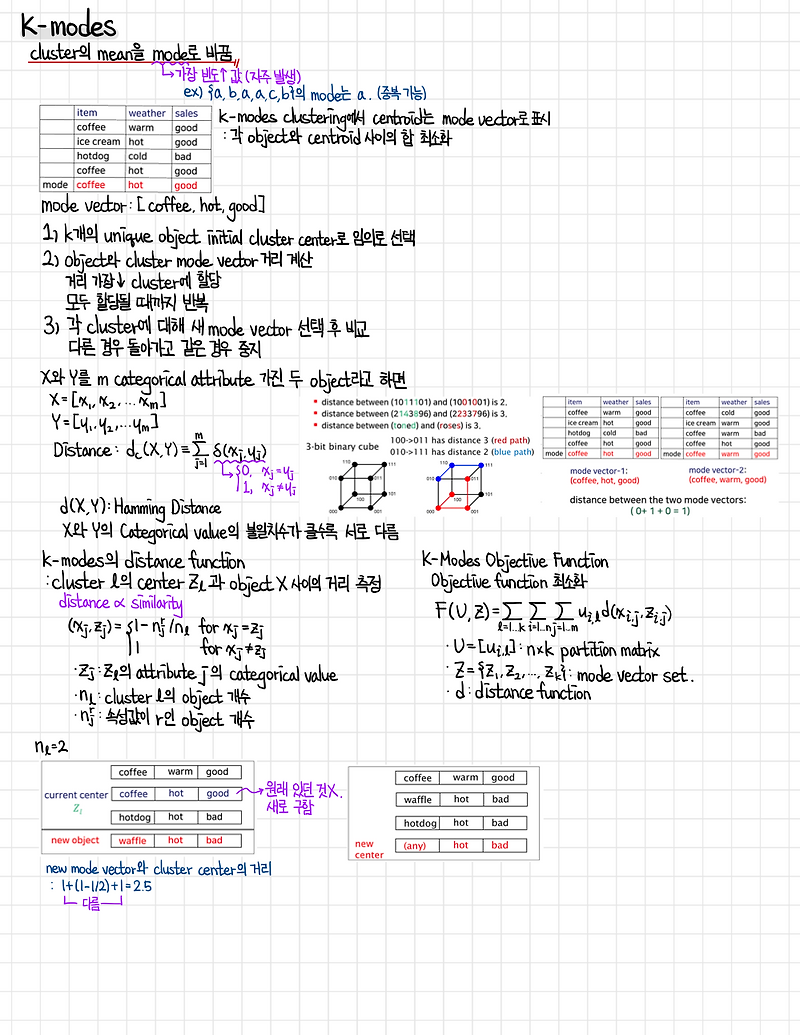 K-modes
cluster의 mean을 mode로 바꿈
↳가장 빈도↑ 값 (자주 발생)
ex) {a, b, a, a, c, b}의 mode는 a. (중복 가능)
item weather sales
coffee warm good
ice cream hot good
hotdog cold bad
coffee hot good
mode coffee hot good
K-modes clustering에서 centroid는 mode vector로 표시
: 각 object와 centroid 사이의 합 최소화
mode vector: [coffee, hot, good]
1) k개의 unique object initial cluster center로 임의로 선택
2) object와 cluster mode vector 거리 계산
거리 가장↓ cluster에 할당
모두 할당될 때까지 반복
3) 각 cluster에 대해 새 mode vector 선택 후 비교
다른 경우 돌아가고 같은 경우 중지
X와 Y를 m categorical attribute 가진 두 object라고 하면
X = [x₁, x₂, ... xₘ]
Y = [y₁, y₂, ... yₘ]
Distance: d_c(X, Y) ≡ Σ_{j=1}^{m} δ(x_j, y_j)
↳ {0, x_j = y_j
1, x_j ≠ y_j
d(X, Y): Hamming Distance
X와 Y의 Categorical value의 불일치수가 클수록 서로 다름
• distance between (1011101) and (1001001) is 2.
• distance between (2143896) and (2233796) is 3.
• distance between (toned) and (roses) is 3.
3-bit binary cube
100->011 has distance 3 (red path)
010->111 has distance 2 (blue path)
110 111
010 011
100 101
000 001
110 111
010 011
100 101
000 001
item weather sales
coffee warm good
ice cream hot good
hotdog cold bad
coffee hot good
mode coffee hot good
item weather sales
coffee cold good
ice cream warm good
coffee warm bad
coffee warm good
mode coffee warm good
mode vector-1:
(coffee, hot, good)
mode vector-2:
(coffee, warm, good)
distance between the two mode vectors:
( 0+ 1 + 0 = 1)
k-modes의 distance function
: cluster l의 center Z_l과 object X 사이의 거리 측정
distance ∝ similarity
(x_j, z_j) = {1 - n_j^r / n_l for x_j = z_j
1 for x_j ≠ z_j
· z_j: Z_l의 attribute j의 categorical value
· n_l: cluster l의 object 개수
· n_j^r: 속성값이 r인 object 개수
K-Modes Objective Function
Objective function 최소화
F(U, Z) = Σ_{l=1...k} Σ_{i=1...n} Σ_{j=1...m} u_{i,l} d(x_{i,j}, z_{i,j})
· U = [u_{i,l}]: n×k partition matrix
· Z = {Z₁, Z₂, ..., Z_k}: mode vector set.
· d: distance function
n_l=2
coffee warm good
current center coffee hot good
Z_l
hotdog hot bad
new object waffle hot bad
→원래 있던 것X.
새로 구함
coffee warm good
waffle hot bad
hotdog hot bad
new center (any) hot bad
new mode vector와 cluster center의 거리
: 1+(1-1/2)+1=2.5
다름